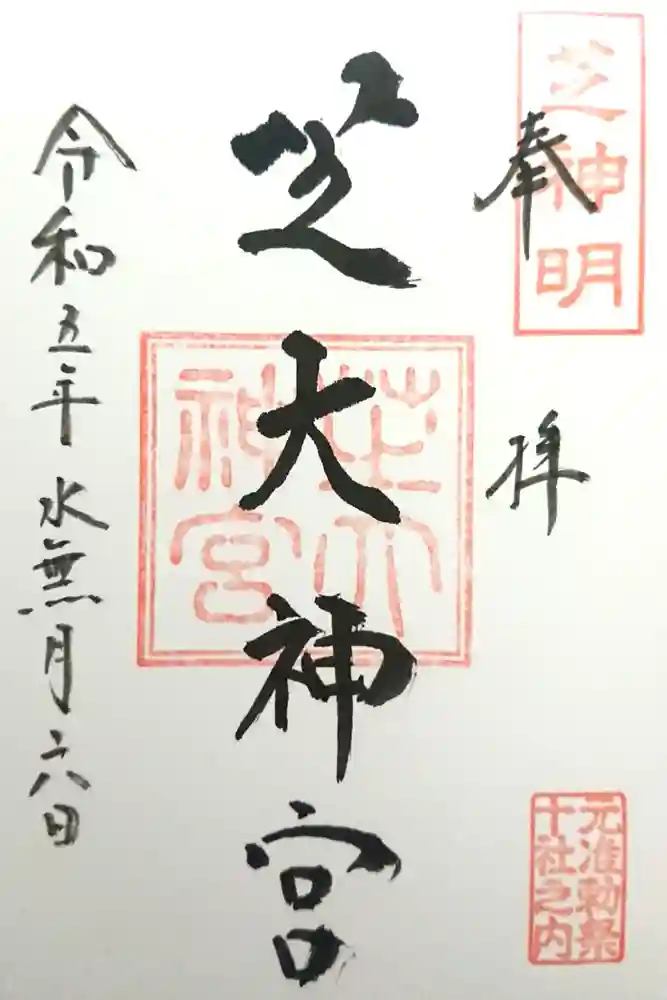 芝神明
奉拝
元准勅祭
十社之内
芝大神宮
芝大
神宮
令和五年水無月六日